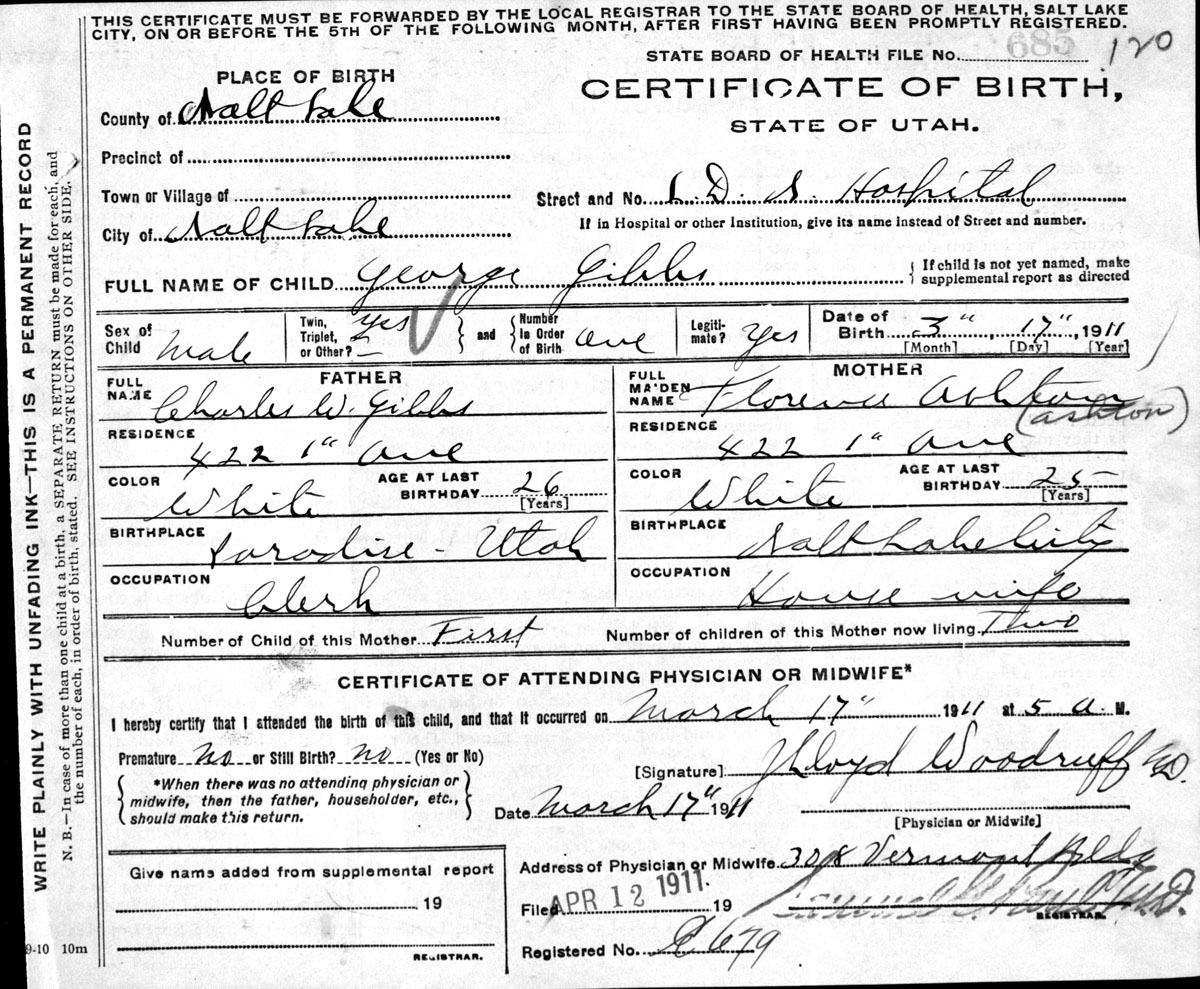 THIS CERTIFICATE MUST BE FORWARDED BY THE LOCAL REGISTRAR TO THE STATE BOARD OF HEALTH, SALT LAKE
CITY, ON OR BEFORE THE 5TH OF THE FOLLOWING MONTH, AFTER FIRST HAVING BEEN PROMPTLY REGISTERED.
STATE BOARD OF HEALTH FILE No. 685 120
PLACE OF BIRTH
CERTIFICATE OF BIRTH,
STATE OF UTAH.
County of Salt Lake
Precinct of
Town or Village of
Street and No. L. D. S. Hospital
City of Salt Lake
If in Hospital or other Institution, give its name instead of Street and number.
FULL NAME OF CHILD George Gibbs
If child is not yet named, make
supplemental report as directed
Sex of Child Male
Twin, Triplet, or Other? yes
and
Number In Order of Birth one
Legitimate? Yes
Date of Birth 3" 17" 1911
[Month] [Day] [Year]
FATHER
MOTHER
FULL NAME Charles W. Gibbs
FULL MAIDEN NAME Florence Ashton
(Ashton)
RESIDENCE 422 1" Ave
RESIDENCE 422 1" Ave
COLOR White
AGE AT LAST BIRTHDAY 26 [Years]
COLOR White
AGE AT LAST BIRTHDAY 25 [Years]
BIRTHPLACE Paradise - Utah
BIRTHPLACE Salt Lake City
OCCUPATION Clerk
OCCUPATION House wife
Number of Child of this Mother First
Number of children of this Mother now living Two
CERTIFICATE OF ATTENDING PHYSICIAN OR MIDWIFE*
I hereby certify that I attended the birth of this child, and that it occurred on March 17" 1911 at 5 a. M.
Premature No or Still Birth? no (Yes or No)
[Signature] J Lloyd Woodruff MD.
*When there was no attending physician or
midwife, then the father, householder, etc.,
should make this return.
Date March 17" 1911
[Physician or Midwife]
Give name added from supplemental report
19
REGISTRAR.
Address of Physician or Midwife 308 Vermont Bldg
Filed APR 12 1911. 19
REGISTRAR.
Registered No. 679
WRITE PLAINLY WITH UNFADING INK—THIS IS A PERMANENT RECORD
N. B.—In case of more than one child at a birth, a SEPARATE RETURN must be made for each, and
the number of each, in order of birth, stated. SEE INSTRUCTIONS ON OTHER SIDE.
9-10 10m